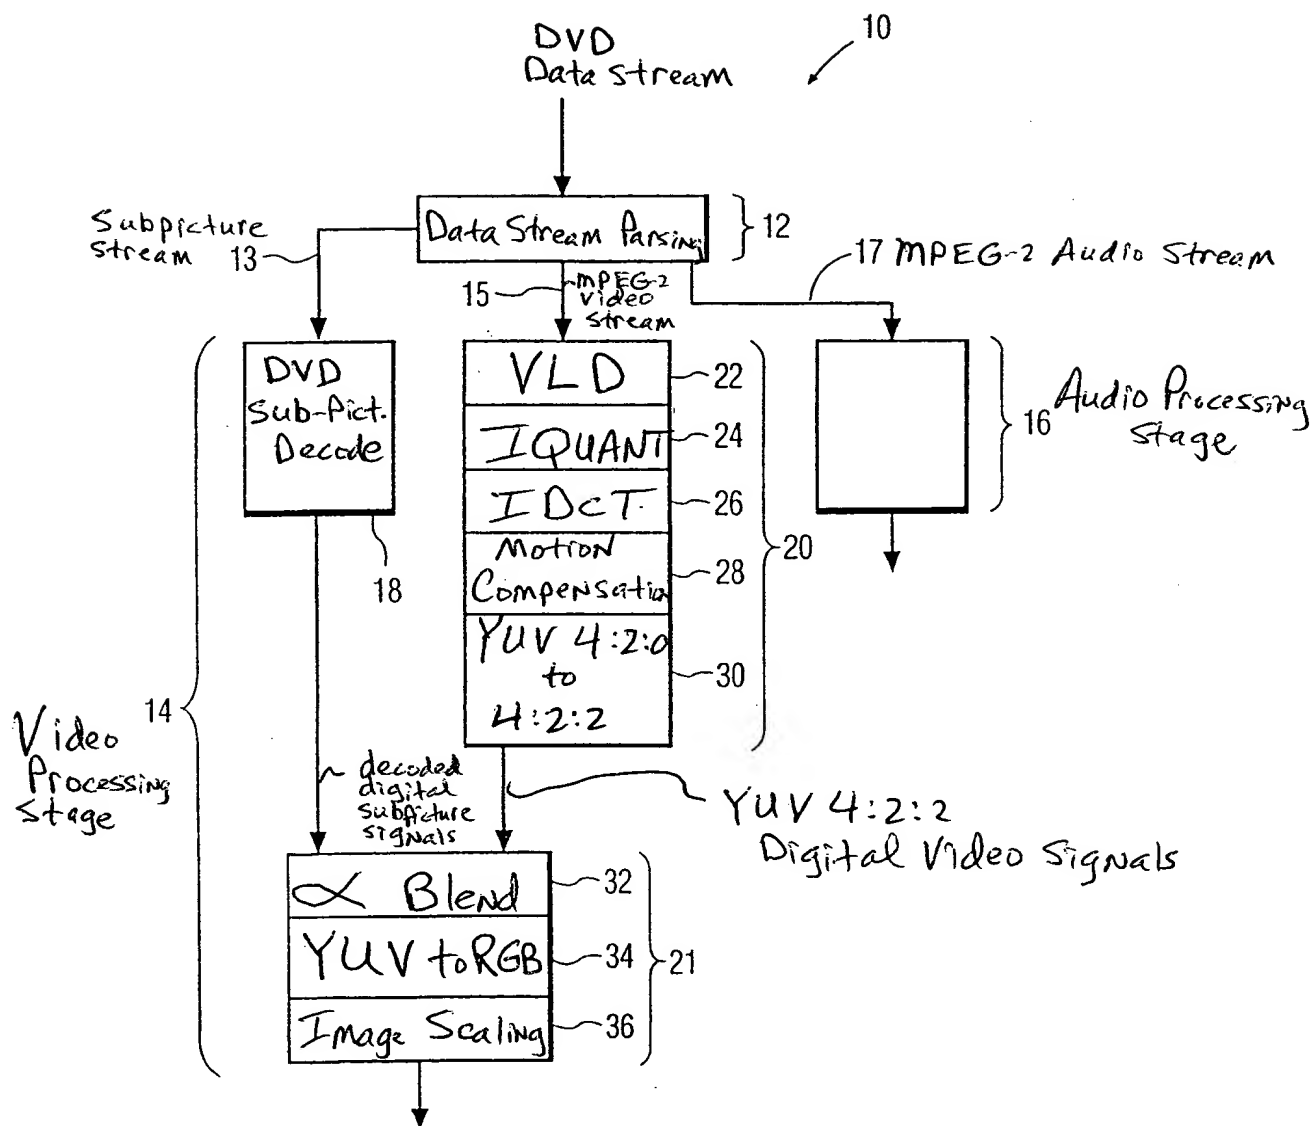 DVD
Data Stream
10
Data Stream Parsing
12
Subpicture
stream 13
17 MPEG-2 Audio Stream
15
MPEG-2
video
stream
DVD
Sub-Pict.
Decode
18
VLD
22
IQUANT
24
IDCT
26
Motion
Compensation
28
YUV 4:2:0
to
4:2:2
30
20
16
Audio Processing
Stage
14
Video
Processing
Stage
decoded
digital
subpicture
signals
YUV 4:2:2
Digital Video Signals
∝ Blend
32
YUV to RGB
34
21
Image Scaling
36